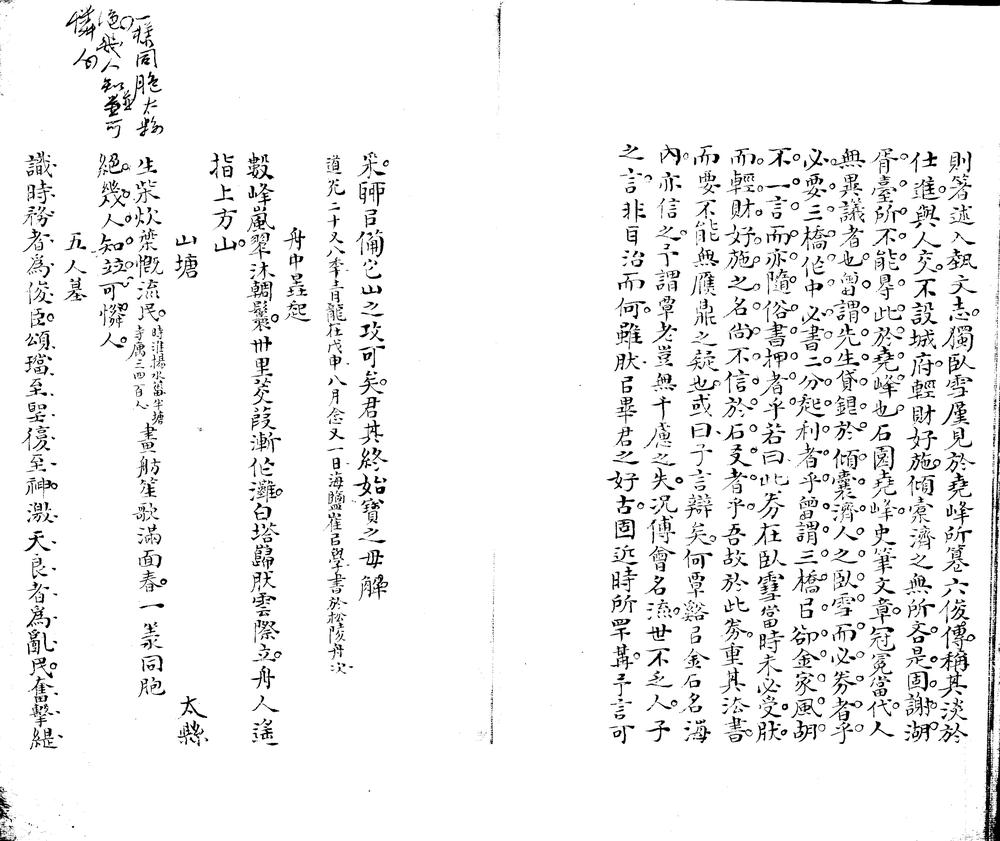 則箸述入埶文志獨臥雪廑見於堯峰所篹六俊傳稱其淡於
仕進與人交不設城府輕財好施傾橐濟之無所吝是固謝湖
胥臺所不能㝵此於堯峰也石園堯峰史筆文章冠冕當代人
無異議者也曾謂先生貸鋃於傾囊濟人之臥雪而必券者乎
必要三橋作中必書二分起利者乎曾謂三橋㠯卻金家風胡
不一言而亦隨俗書押者乎若曰此券在臥雪當時未必受肰
而輕財好施之名尚不信於石友者乎吾故於此券重其法書
而要不能無贗鼎之疑也或曰子言辯矣何覃谿㠯金石名海
內亦信之予謂覃老豈無千慮之失況傅會名流世不乏人子
之言非目治而何雖肰㠯畢君之好古固近時所罕冓予言可
采郰㠯備它山之攻可矣君其終始寶之毋解
道光二十又八年青龍在戊申八月念又一日海鹽崔㠯學書於松陵舟次
舟中晨起
數峰嵐翠沐鬝鬟卅里茭葭漸作灘白塔巋肰雲際立舟人遙
指上方山
山塘
太縣
生柴炊槳慨流民時淮揚水菑半塘寺厲三四百人畫舫笙歌滿面春一羕同胞
絕幾人知竝可憐人
五人墓
識時務者為俊臣頌璫至聖復至神激天良者為亂民奮擊緹
一樣同胞太縣
絕幾人知並可
憐句